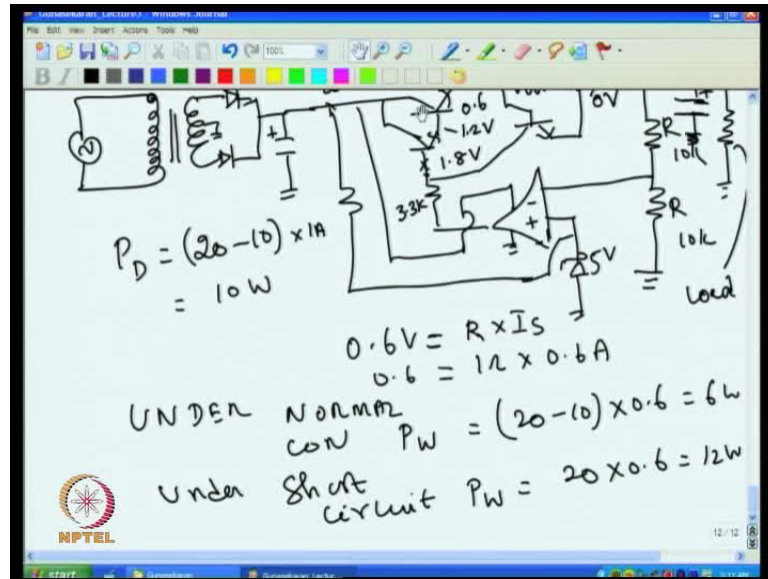 Gunasekaran_Lecture1 - Windows Journal
File Edit View Insert Actions Tools Help
100%
B I
0.6
1.2V
1.8V
0V
3.3K
R
10k
R
10k
5V
Load
P_D = (20-10) × 1A
= 10W
0.6V = R × Is
0.6 = 1Ω × 0.6A
UNDER NORMAL
CON P_W = (20-10) × 0.6 = 6W
Under Short
circuit P_W = 20 × 0.6 = 12W
NPTEL
12/12
start
Gunasekaran